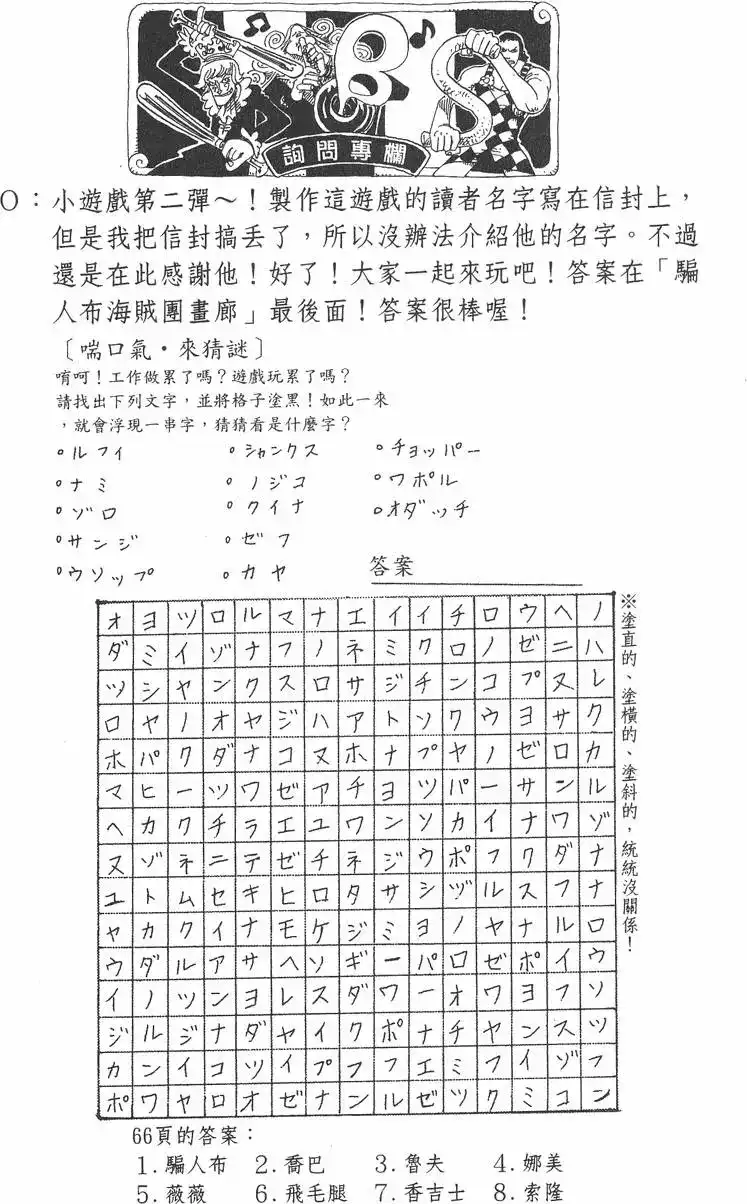 SBS
詢問專欄
O：小遊戲第二彈～！製作這遊戲的讀者名字寫在信封上，
但是我把信封搞丟了，所以沒辦法介紹他的名字。不過
還是在此感謝他！好了！大家一起來玩吧！答案在「騙
人布海賊團畫廊」最後面！答案很棒喔！
〔喘口氣・來猜謎〕
唷呵！工作做累了嗎？遊戲玩累了嗎？
請找出下列文字，並將格子塗黑！如此一來
，就會浮現一串字，猜猜看是什麼字？
。ルフィ 。シャンクス 。チョッパー
。ナミ 。ノジコ 。ワポル
。ゾロ 。クイナ 。オダッチ
。サンジ 。ゼフ
。ウソップ 。カヤ 答案
オヨツロルマナエイイチロウヘノ
ダミイゾナフノネミクロノゼニハ
ツシヤンクスロサジチンコプヌレ
ロヤノオヤジハアトソクウヨサク
ホパクダナコヌホナプヤノゼロカ
マヒーツワゼアチヨツパーサンル
ヘカクチラエユワンソカイナワゾ
ヌゾネニテゼチネジウポフクダナ
ユトムセキヒロタサシヅルスフナ
ヤカクイナモケジミヨノヤナルロ
ウダルアサヘソギーパロゼポイウ
イノツンヨレスダワーオワヨフソ
ジルジナダヤイクポナチヤンスツ
カンイコツイプフフエミフイゾフ
ポワヤロオゼナンルゼツクミコン
※塗直的、塗橫的、塗斜的，統統沒關係！
66頁的答案：
1.騙人布 2.喬巴 3.魯夫 4.娜美
5.薇薇 6.飛毛腿 7.香吉士 8.索隆